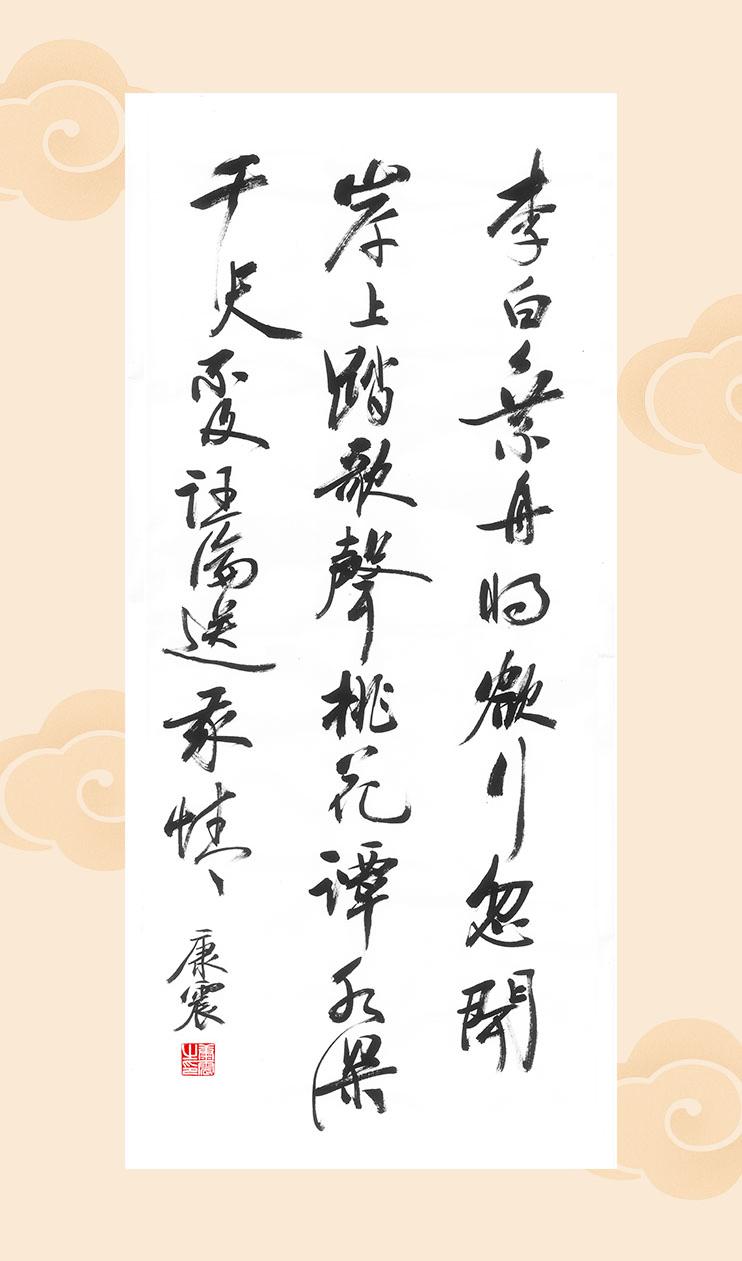 李白乘舟将欲行忽聞
岸上踏歌聲桃花潭水深
千尺不及汪倫送我情
康震
康震之印